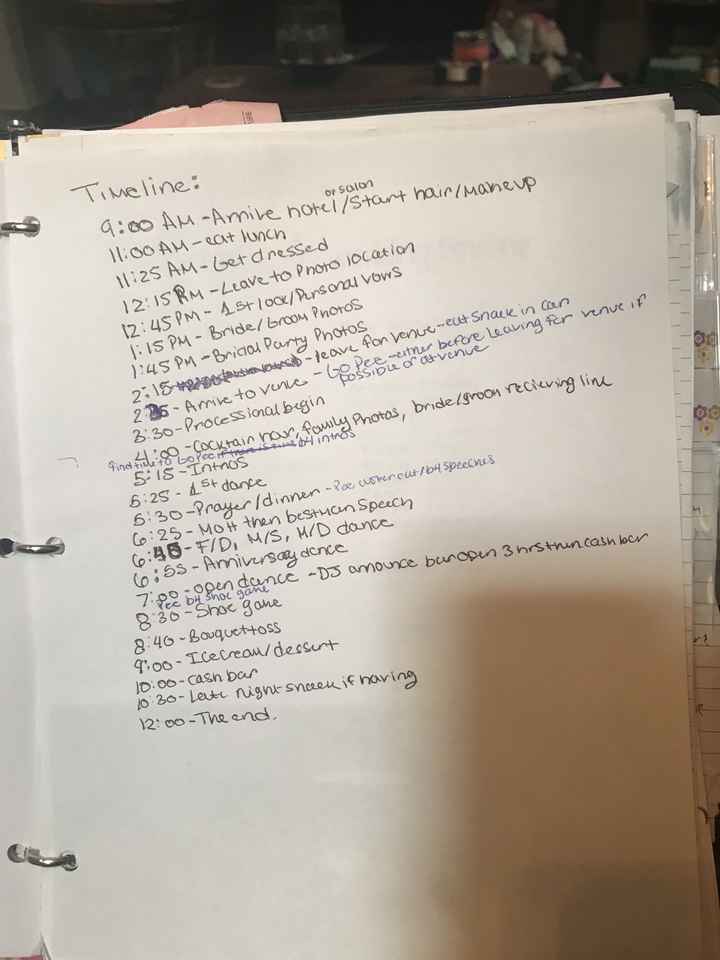 Timeline:
or salon
9:00 AM - Arrive hotel/Start hair/Makeup
11:00 AM - eat lunch
11:25 AM - Get dressed
12:15 PM - Leave to Photo location
12:45 PM - 1st look/Personal vows
1:15 PM - Bride/Groom Photos
1:45 PM - Bridal Party Photos
2:15 - leave for venue - eat snack in car
2: 5 - Arrive to venue - Go Pee - either before leaving for venue if
possible or at venue
3:30 - Processional begin
4:00 - Cocktain hour, family Photos, bride/groom recieving line
find time to Go Pee b4 intros
5:15 - Intros
5:25 - 1st dance
5:30 - Prayer/dinner - Pee after eat/b4 speeches
6:25 - MOH then bestman Speech
6:45 - F/D, M/S, H/D dance
6:55 - Anniversary dance
7:00 - open dance - DJ announce bar open 3 hrs then cash bar
Pee b4 Shoe game
8:30 - Shoe game
8:40 - Bouquet toss
9:00 - Icecream/dessert
10:00 - cash bar
10:30 - Late night snack if having
12:00 - The end.